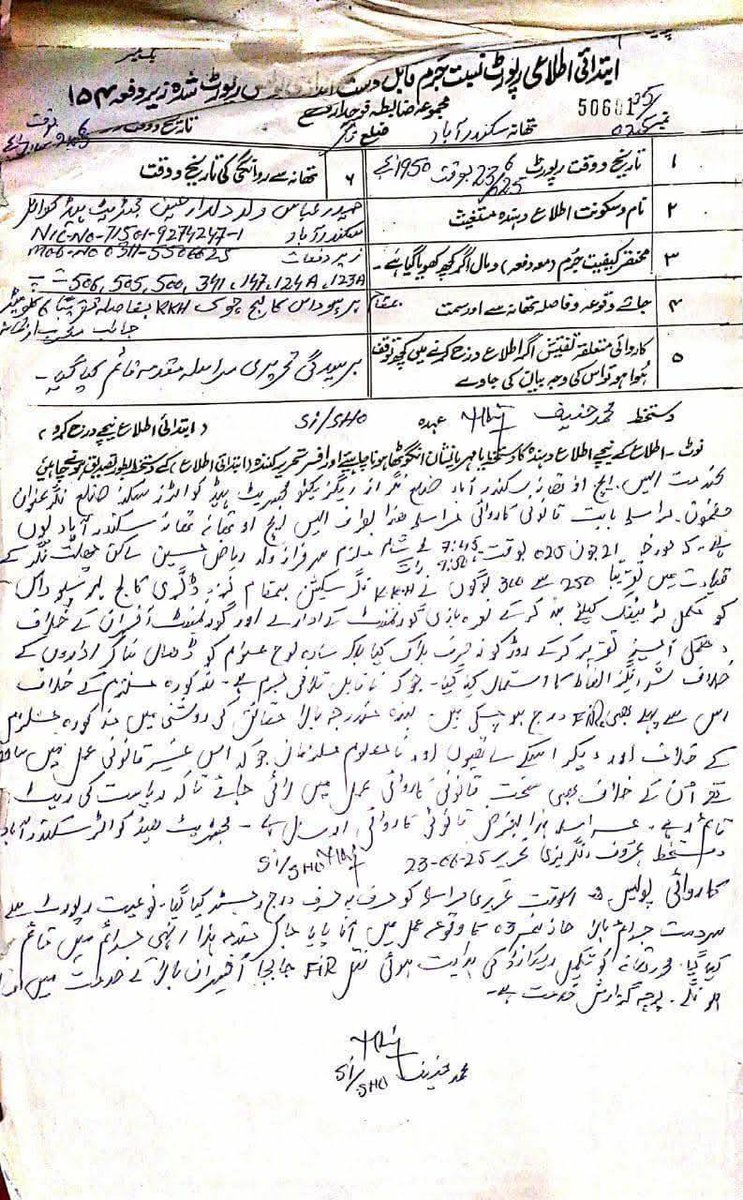 ابتدائی اطلاعی رپورٹ نسبت جرم قابل دست اندازی پولیس رپورٹ شدہ زیر دفعہ ۱۵۴
مجموعہ ضابطہ فوجداری
50601
تھانہ سکندرآباد ضلع نگر تاریخ وقوعہ
۱ تاریخ و وقت رپورٹ 23/6/25 بوقت 1950 بجے
۶ تھانہ سے روانگی کی تاریخ و وقت
۲ نام و سکونت اطلاع دہندہ مستغیث
حیدر عباس ولد دلدار حسین مجسٹریٹ ہیڈ کوارٹر
سکندرآباد NIC-No-71501-9274247-1
۳ مختصر کیفیت جرم (معہ دفعہ) و مال اگر کچھ کھویا گیا ہے۔
Mob-No 0311-5506625 زیر دفعات
506، 505، 500، 341، 147، 124A، 123A ت پ
۴ جائے وقوعہ و فاصلہ تھانہ سے اور سمت
بمقام ہرسپو داس کالج چوک KKH بفاصلہ 6 کلومیٹر
جانب مغرب از تھانہ
۵ کاروائی متعلقہ تفتیش اگر اطلاع درج کرنے میں کچھ توقف ہوا ہو تو اس کی وجہ بیان کی جاوے
برسیدگی تحریری مراسلہ مقدمہ قائم کیا گیا۔
دستخط محمد حنیف عہدہ SI/SHO (ابتدائی اطلاع نیچے درج کرو)
نوٹ۔ اطلاع کے نیچے اطلاع دہندہ کا دستخط یا مہر یا نشان انگوٹھا ہونا چاہیے اور افسر تحریر کنندہ (ابتدائی اطلاع) کے دستخط بطور تصدیق ہونے چاہئیں
بخدمت ایس۔ ایچ۔ او تھانہ سکندر آباد ضلع نگر از ایگزیکٹو مجسٹریٹ ہیڈ کوارٹرز سکندر ضلع نگر عنوان
مضمون۔ مراسلہ بابت قانونی کاروائی مراسلہ ھذا بطرف ایس ایچ او تھانہ سکندر آباد یوں
ہے کہ مورخہ 21 جون 025 بوقت 7:45 شام ملزم سرفراز ولد ریاض حسین ساکن نگر کے
قیادت میں تقریباً 250 سے 300 لوگوں نے KKH نگر سیکشن بمقام نزد ڈگری کالج ہرسپو داس
کو مکمل ٹریفک کیلئے بند کر کے نعرہ بازی گورنمنٹ کے ادارے اور گورنمنٹ آفسران کے خلاف
دھمکی آمیز تقریر کر کے روڈ کو نہ صرف بلاک کیا بلکہ سادہ لوح عوام کو ڈھال بنا کر اداروں کے
خلاف شر انگیز الفاظ کا استعمال کیا گیا۔ جو کہ ناقابل تلافی جرم ہے۔ مذکورہ ملزم کے خلاف
اس سے پہلے بھی FIR درج ہو چکی ہیں۔ لہذا مندرجہ بالا حقائق کی روشنی میں مذکورہ ملزم
کے خلاف اور دیگر اسکے ساتھیوں اور نامعلوم ملزمان جو کہ اس غیر قانونی عمل میں ساتھ
تھے ان کے خلاف بھی سخت قانونی کاروائی عمل میں لائی جائے تاکہ ریاست کی ریٹ
قائم رہے۔ مراسلہ ہذا بغرض قانونی کاروائی ارسال ہے۔ مجسٹریٹ ہیڈ کوارٹر سکندر آباد
دستخط بحروف انگریزی تحریر 23-06-25 SI/SHO
کاروائی پولیس اسوقت تحریری مراسلہ کو حرف بہ حرف درج رجسٹر کیا گیا۔ نوعیت رپورٹ سے
سردست جرائم بالا کا وقوعہ عمل میں آنا پایا جا کر مقدمہ ہذا انہی جرائم میں قائم
کیا گیا۔ محرر تھانہ کو تکمیل ریکارڈ کی ہدایت ہوئی نقل FIR جابجا آفیسران بالا کے خدمت میں
ہو نگے۔ پرچہ گذارش خدمت ہے۔
SI/SHO
محمد حنیف